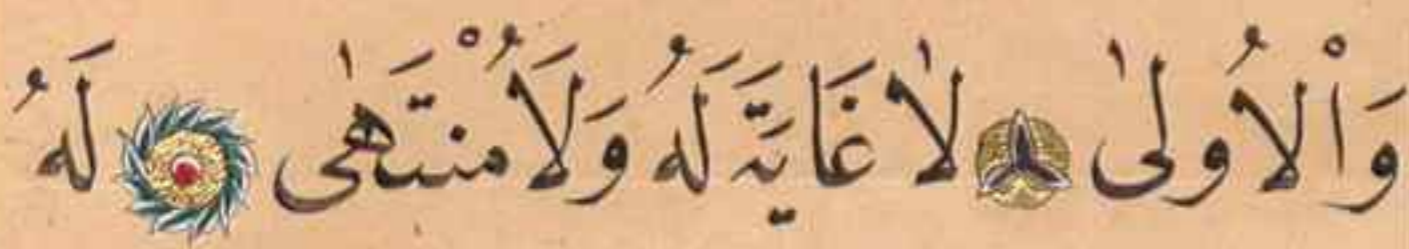 وَاْلاُولٰى لاٰ غَايَةَ لَهُ وَلَا مُنْتَهٰى لَهُ